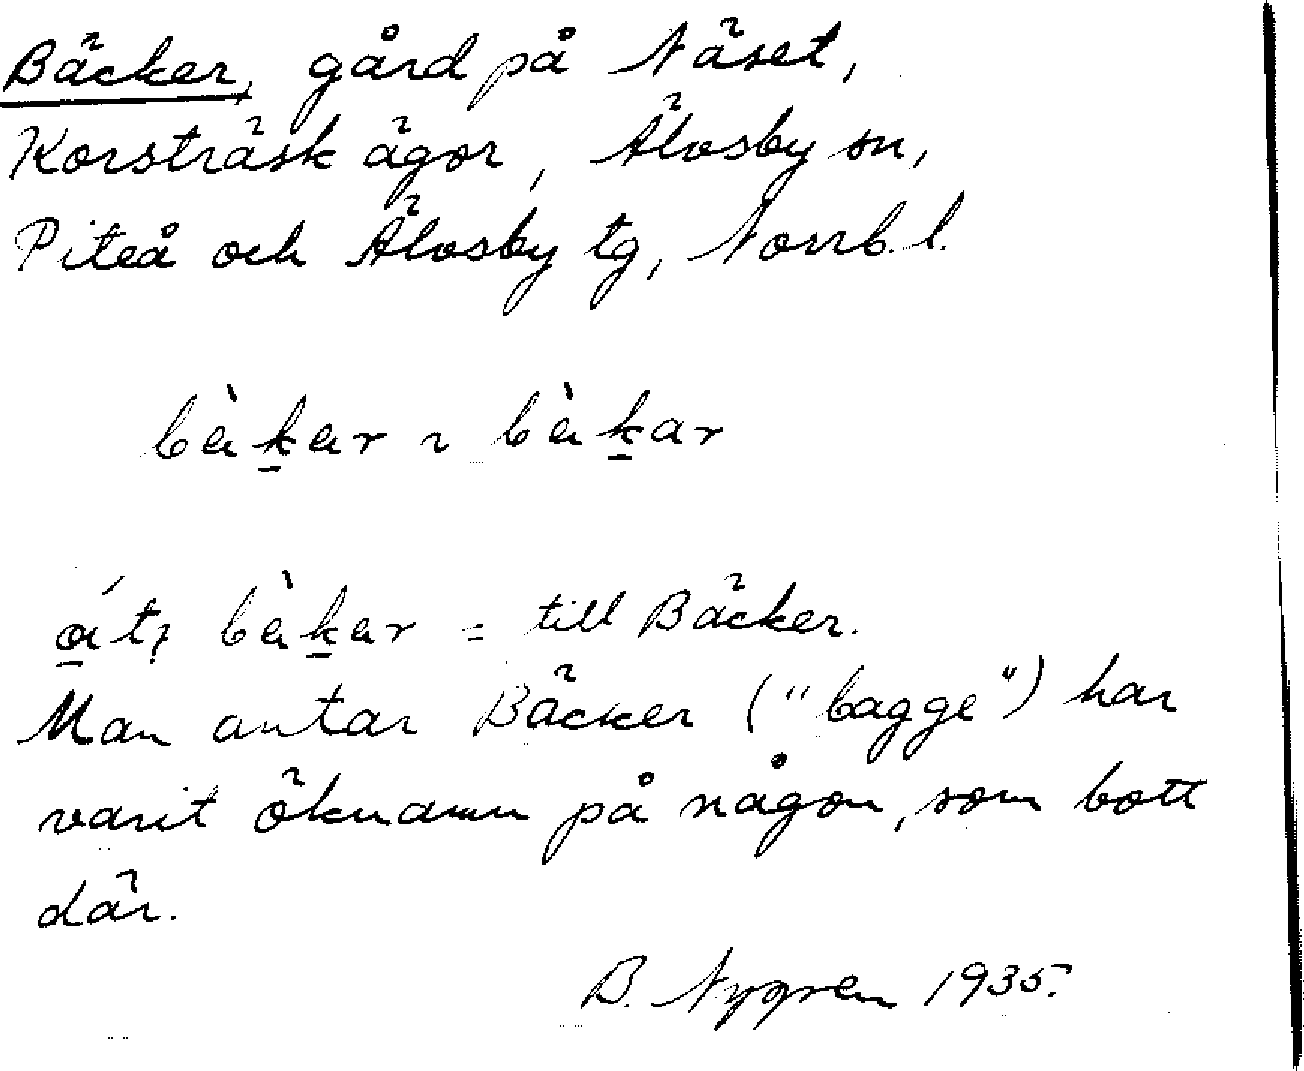 Bäcker, gård på Näset,
Korsträsk ägor, Älvsby sn,
Piteå och Älvsby tg, Norrb. l.
bæ̀k̲ær ~ bæ̀k̲ar
bæ̀k̲ær = till Bäcker.
Man antar Bäcker ("bagge") har
varit öknamn på någon, som bott
där.
B. Nygren 1935.